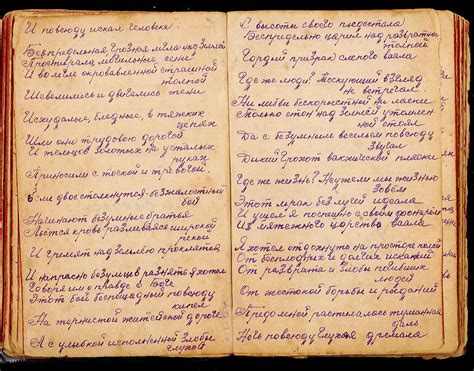 И повсюду искал человека:
Беспредельная грозная мгла над землей
Простирала могильные сени
И волнам окровавленной страшной
толпой
Шевелились и двигались тени
Исхудалые, бледные, в тяжких
цепях
Шли они трудовою дорогой
И тельцов золотых на усталых
руках
Приносили с тоской и тревогой.
двое столкнутся - безжалостный
бой
Начинают безумные братья
Льется кровь разливаясь широкой
рекой
И гремят над землею проклятья
И напрасно безумцев разнять я хотел
Говоря им о правде в Боге
Этот бой беспощадный повсюду
кипел
На тернистой житейской дороге
А с улыбкой исполненной злобы
глухой
В высоты своего пьедестала
Беспредельно царил над развратной
толпой
Гордый призрак слепого ваала
Где же люди? Тоскующий взгляд
не встречал
Ни любви бескорыстной ни ласки
Только стон над землей утомлен
ной стоял
Да с безумным весельем повсюду
звучал
Дикий грохот вакхической пляски
Где же жизнь? Неужели мы жизнью
зовем
Этот мрак без лучей идеала
И ушел я поспешно с своим фонарем
Из мятежного царства ваала
Я хотел отдохнуть на просторе полей
От бесплодных и долгих исканий
От разврата и злобы погибших
людей
От жестокой борьбы и рыданий
Предо мной расстилалась туманная
даль
Ночь повсюду глухая дремала